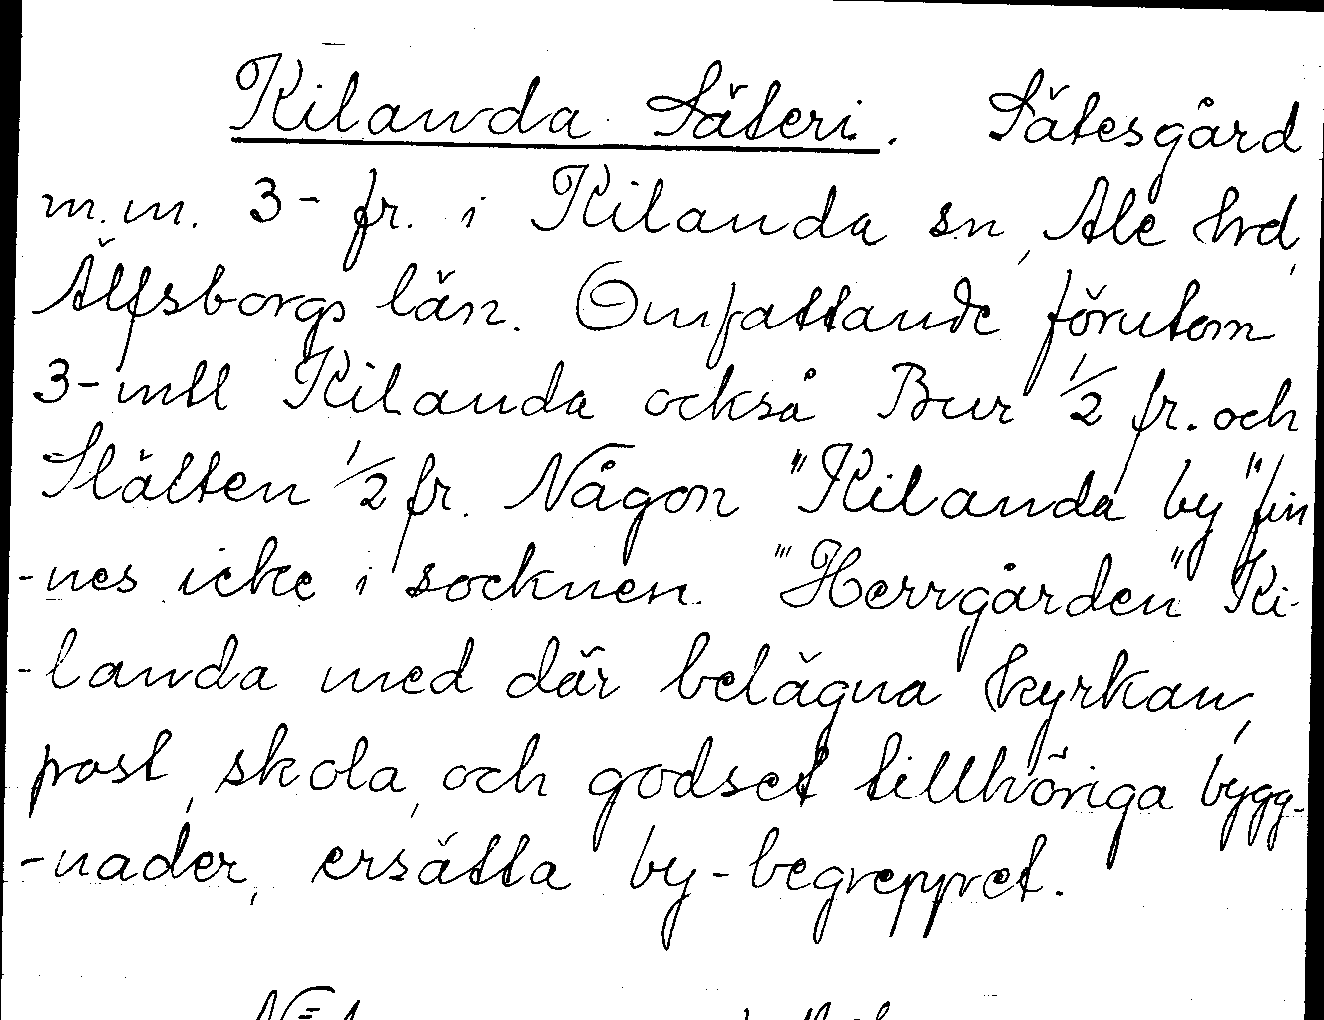 Kilanda Säteri. Sätesgård
m.m. 3- fr. i Kilanda sn, Ale hrd,
Älfsborgs län. Omfattande förutom
3-mtl Kilanda också Bur 1/2 fr. och
Slätten 1/2 fr. Någon "Kilanda by" fin
-nes icke i socknen. "Herrgården" Ki-
-landa med där belägna kyrkan,
post, skola, och godset tillhöriga bygg-
-nader, ersätta by-begreppet.